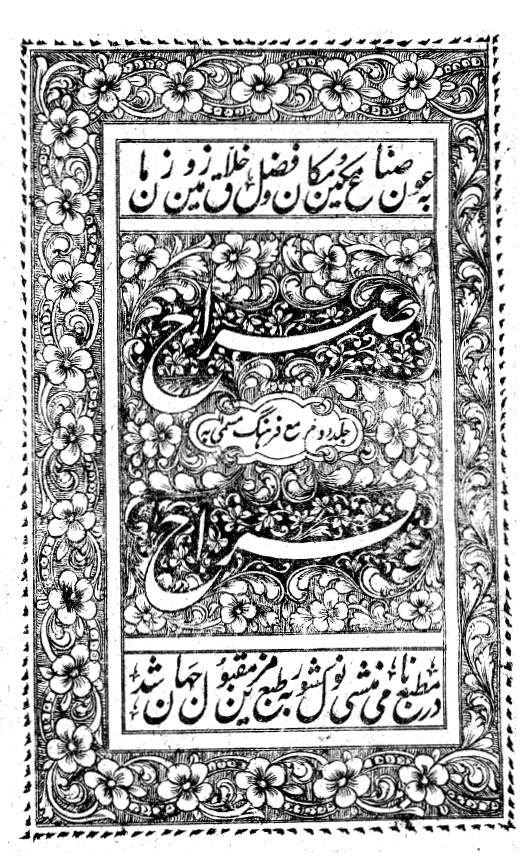 به عون صناع مکین و مکان و فضل خلاق زمین و زمان
صراح
جلد دوم مع فرهنگ مسمی به
قراح
در مطبع نامی منشی نولکشور به طبع مزین مقبول جهان شد